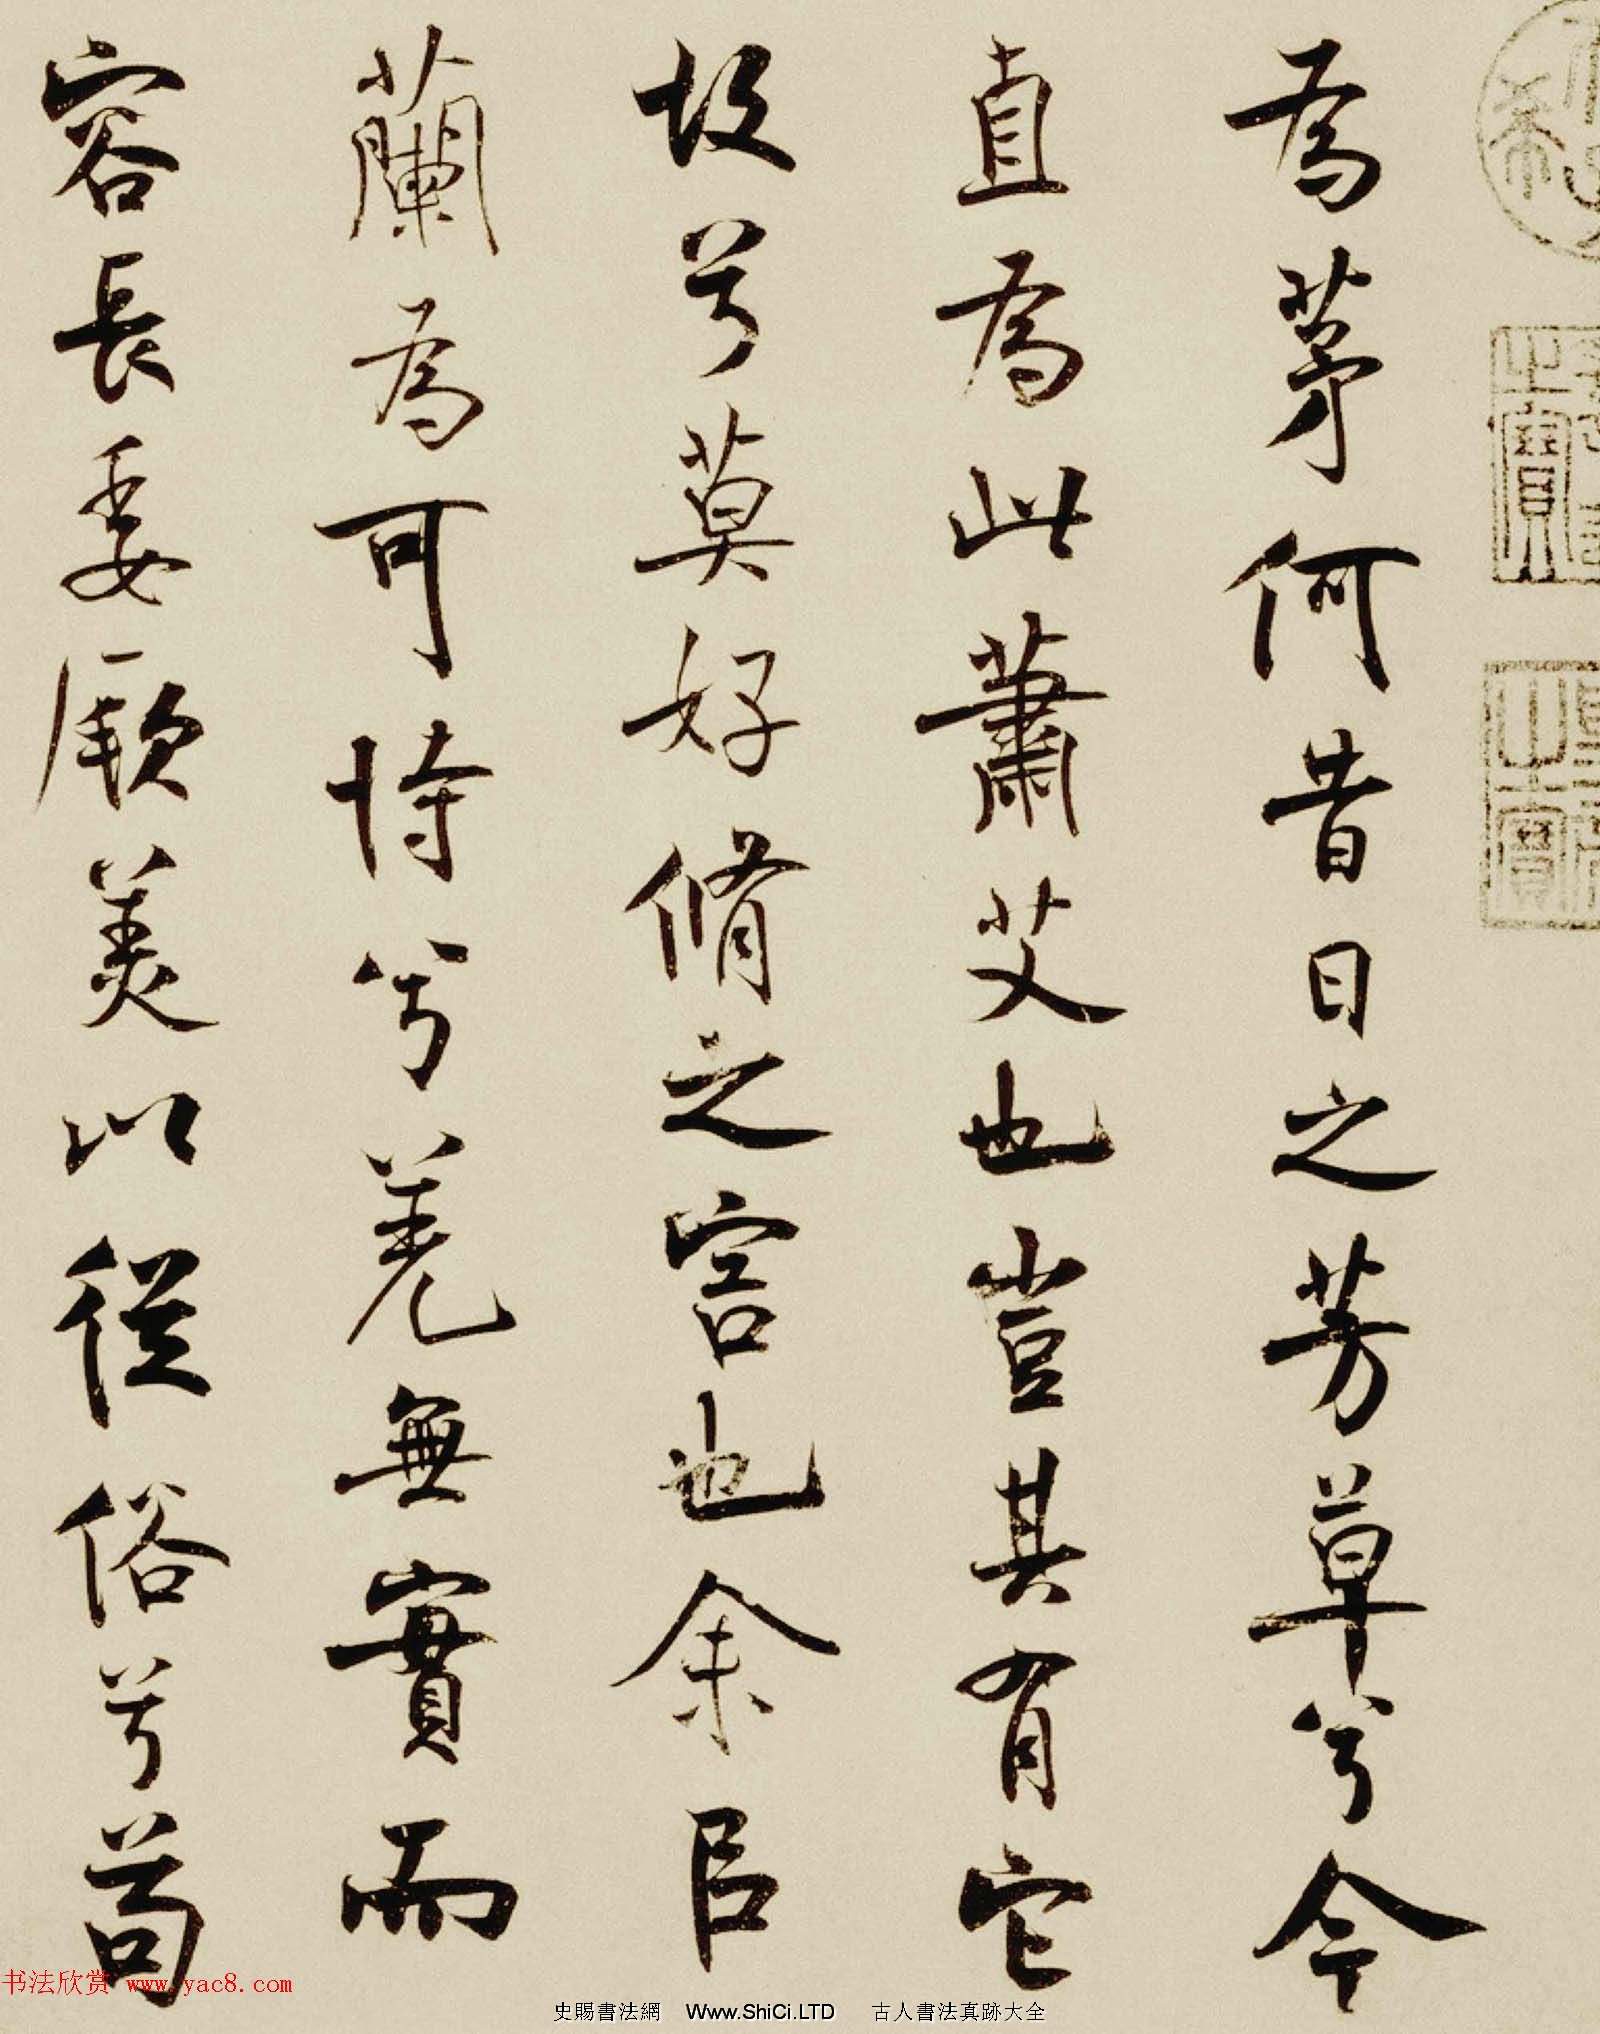 為茅何昔日之芳草兮今
直為此蕭艾也豈其有它
故兮莫好脩之害也余㠯
蘭為可恃兮羌無實而
容長委厥美以從俗兮苟
書法欣赏 www.yac8.com
史賜書法網 Www.ShiCi.LTD 古人書法真跡大全